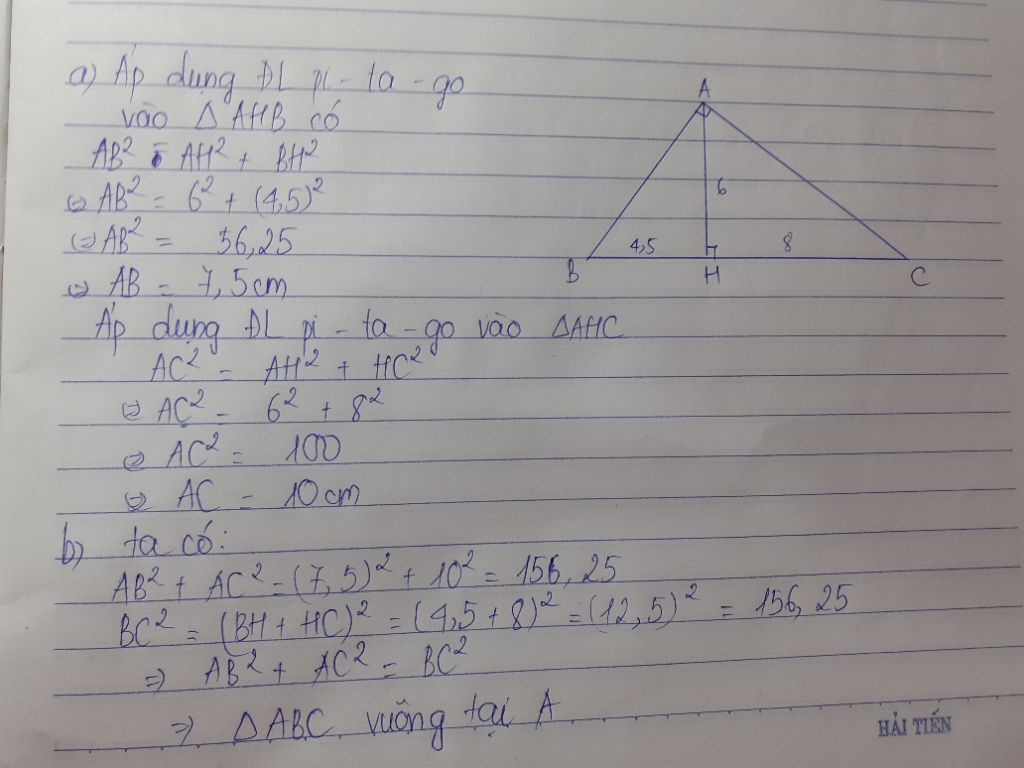 a) Áp dụng ĐL pi-ta-go
vào △AHB có
AB² = AH² + BH²
⇔ AB² = 6² + (4,5)²
⇔ AB² = 56,25
⇔ AB = 7,5cm
Áp dụng ĐL pi-ta-go vào △AHC
AC² = AH² + HC²
⇔ AC² = 6² + 8²
⇔ AC² = 100
⇔ AC = 10cm
b) ta có:
AB² + AC² = (7,5)² + 10² = 156,25
BC² = (BH + HC)² = (4,5 + 8)² = (12,5)² = 156,25
⇒ AB² + AC² = BC²
⇒ △ABC vuông tại A
A
6
4,5
8
B
H
C
HẢI TIẾN